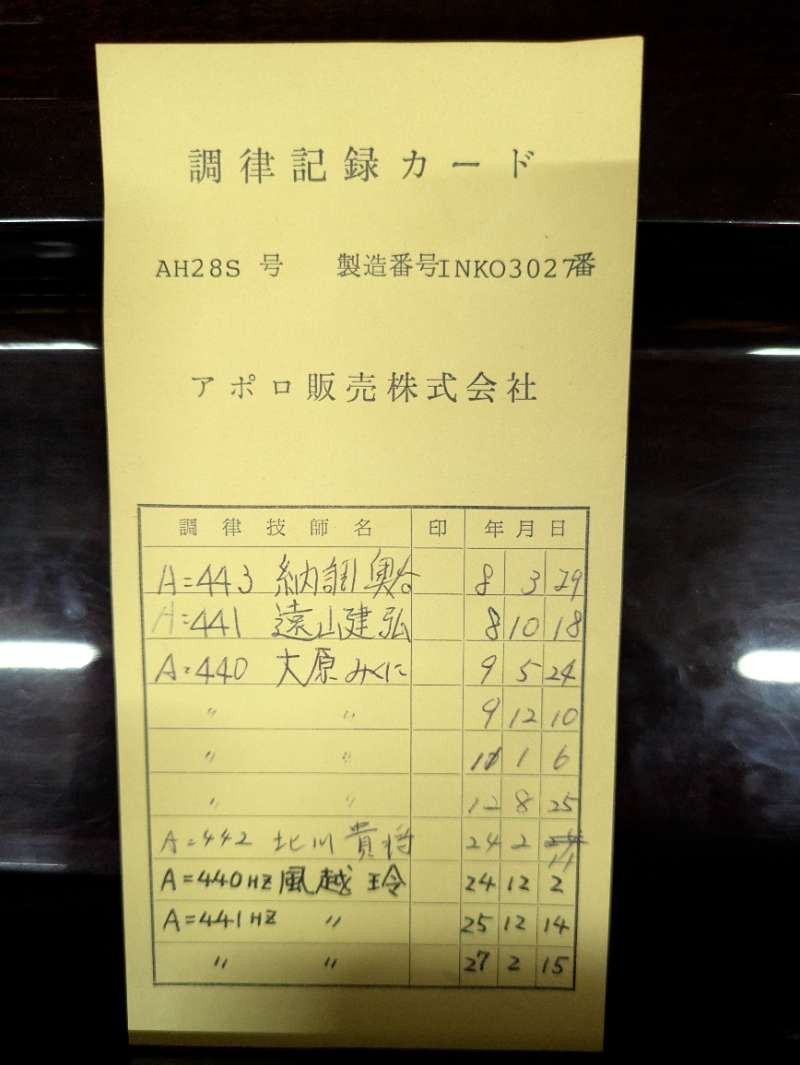 調律記録カード
AH28S 号 製造番号INKO3027番
アポロ販売株式会社
調律技師名 印 年月日
A=443 8 3 29
A=441 遠山建弘 8 10 18
A=440 大原みくに 9 5 24
〃 〃 9 12 10
〃 〃 1 6
〃 〃 12 8 25
A=442 北川貴将 24 2 14
A=440HZ 風越 玲 24 12 2
A=441HZ 〃 25 12 14
〃 〃 27 2 15